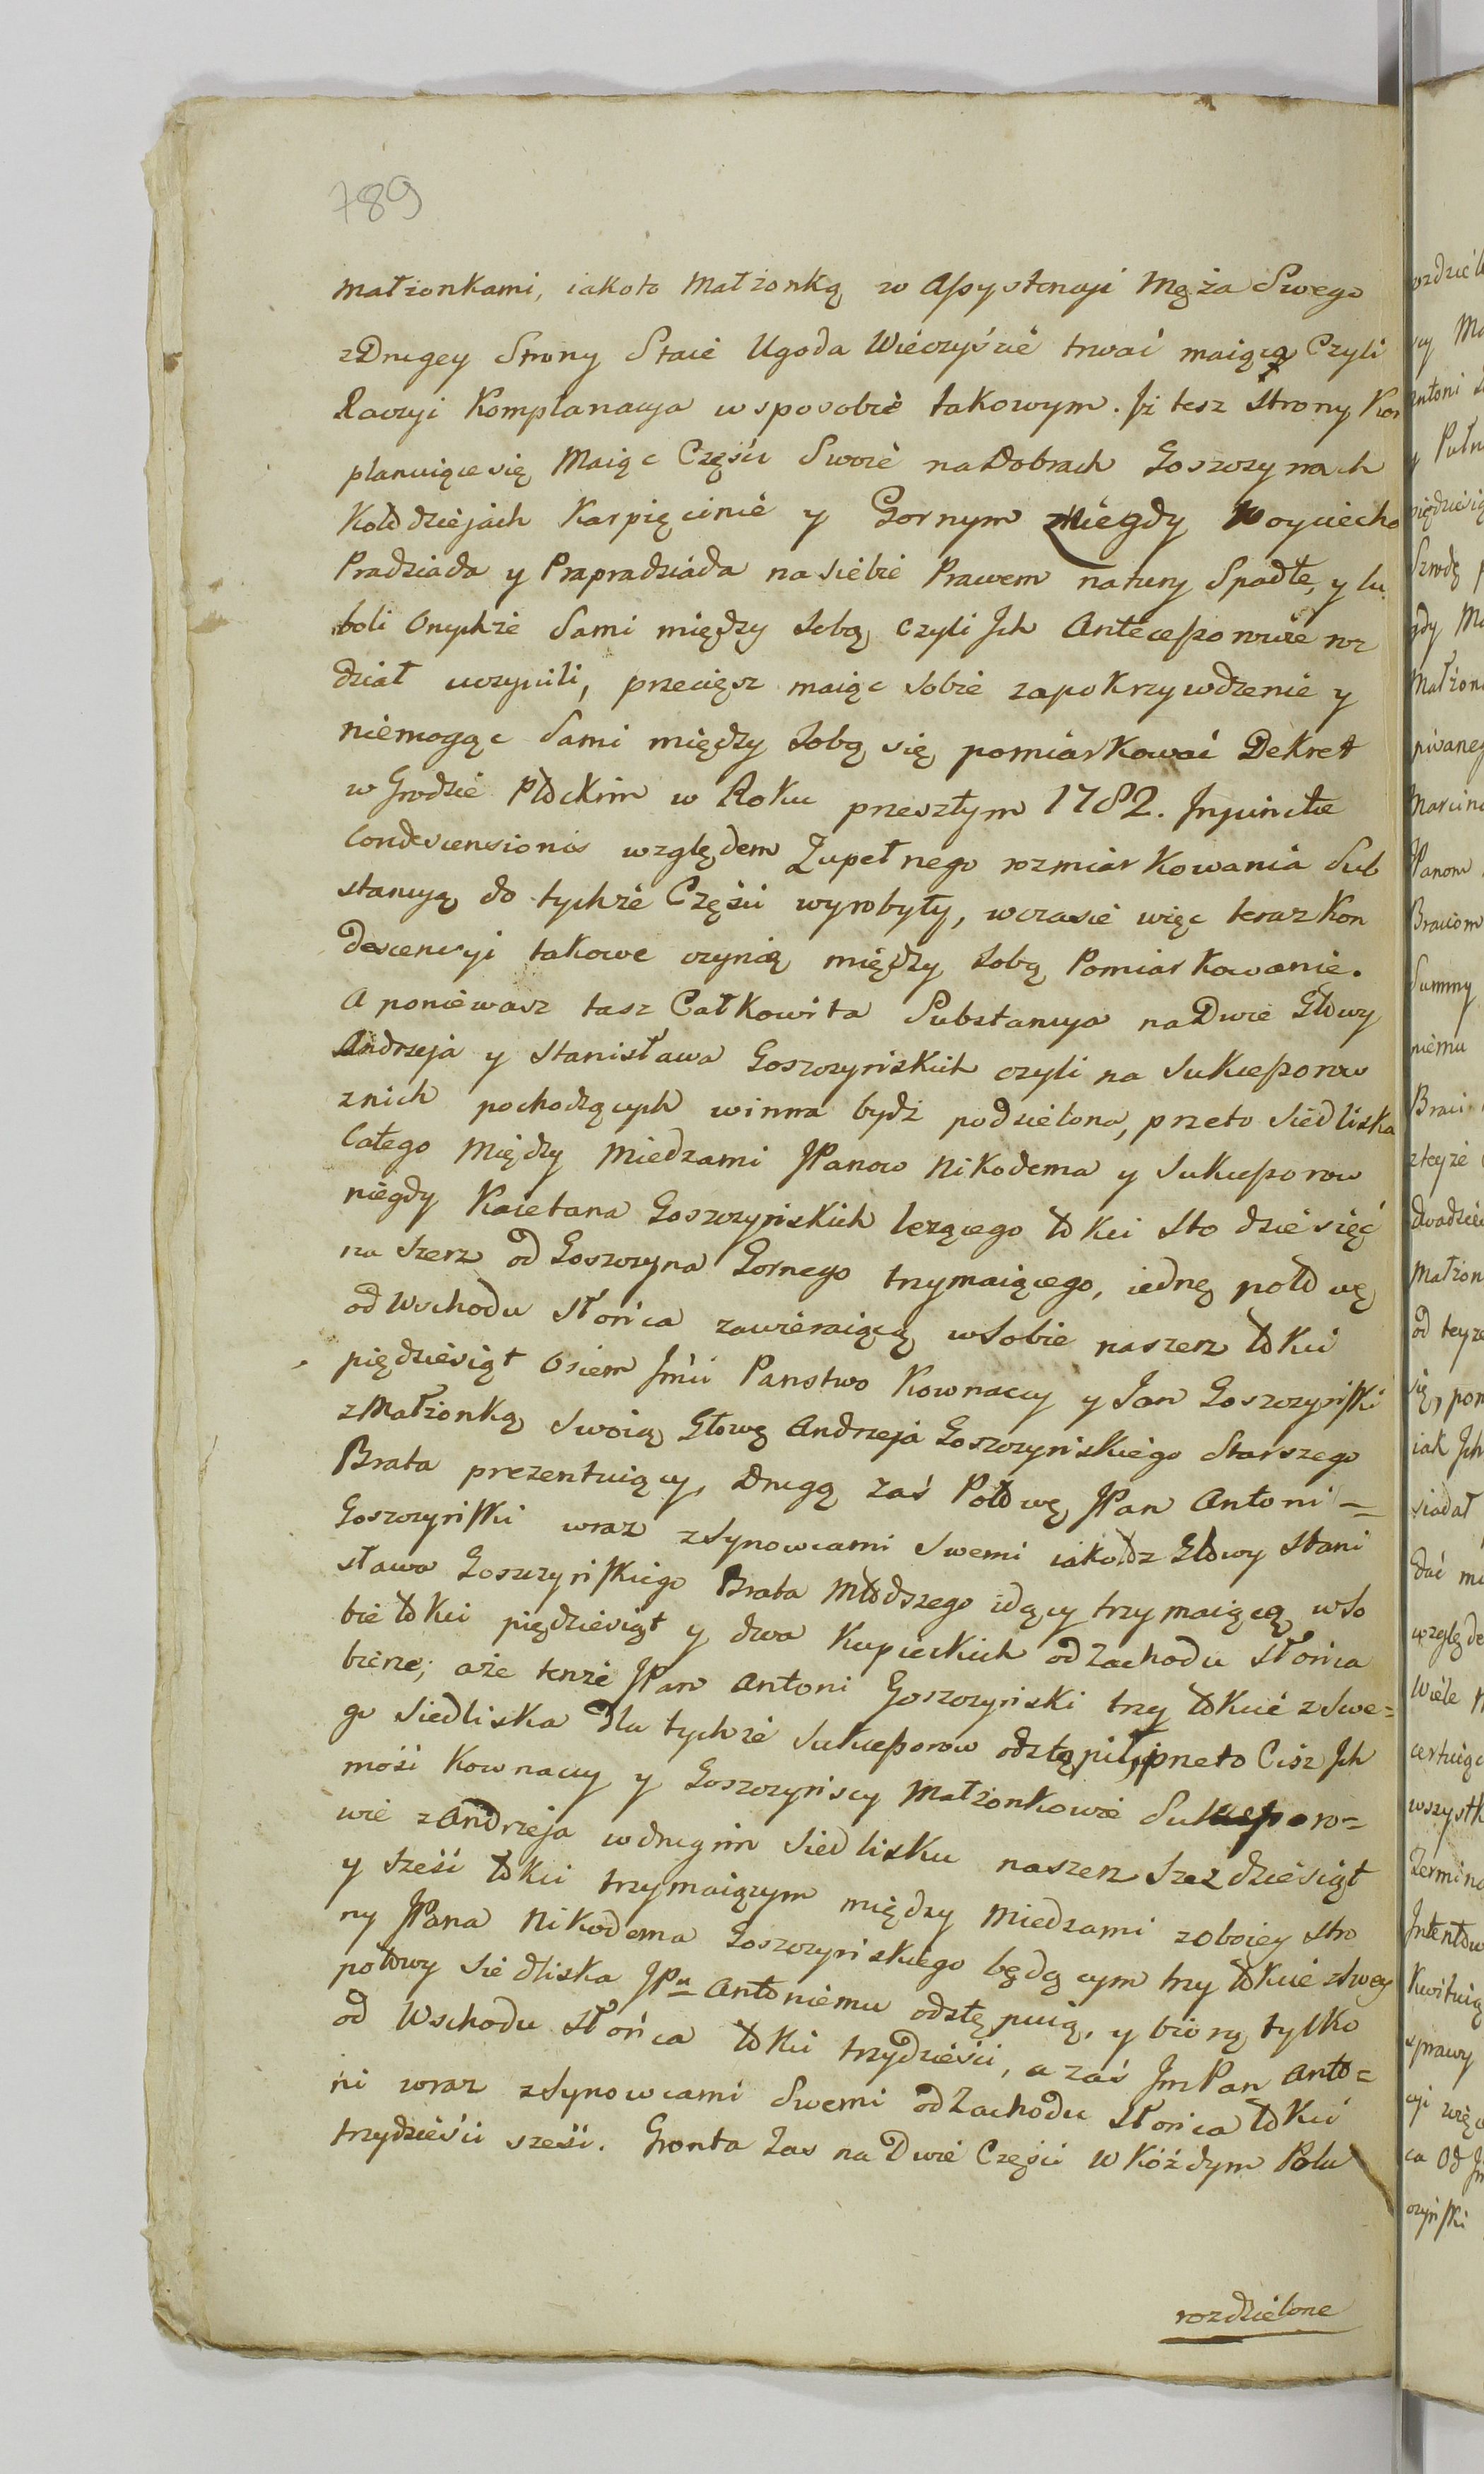 789
małżonkami, iakoto Małżonką w Assystencyi Męża Swego
z Drugey Strony Staie Ugoda Wieczyście trwać maiąca Czyli
Raczyi Komplanacya w sposobie takowym. Iż tesz Strony Kom
planuiące się Maiąc Części Swoie na Dobrach Goszczynach
Kołodziejach Karpięcinie y Gornym z Niegdy Woyciecha
Pradziada y Prapradziada na siebie Prawem natury Spadłe, y lu
boli Onychże Sami między Sobą czyli Ich Antecessorowie roz
dział uczynili, przecięsz maiąc Sobie zapokrzywdzenie y
niemogąc Sami między Sobą się pomiarkować Dekret
w Grodzie Płockim w Roku przeszłym 1782. Injunctæ
Condescensionis względem Zupełnego rozmiarkowania Sub
stancyą do tychże Części wyrobyły, wczasie więc teraz Kon
descencyi takowe czynią między Sobą Pomiarkowanie.
A poniewasz tasz Całkowita Substancya na Dwie Głowy
Andrzeja y Stanisława Goszczyńskich czyli na Sukcessorow
z nich pochodzących winna bydź podzielona, przeto Siedliska
Całego Między Miedzami JPanow Nikodema y Sukcessorow
niegdy Kaietana Goszczyńskich lezącego łokci Sto dziesięć
na Szerz od Goszczyna Gornego trzymaiącego, iednę połowę
od Wschodu Słońca zawieraiącą w Sobie naszerz łokci
pięдziesiąt Osiem Jmći Panstwo Kownaccy y Jan Goszczyński
z Małżonką Swoią Głowę Andrzeja Goszczyńskiego Starszego
Brata prezentuiący, Drugą zaś Połowę JPan Antoni =
Goszczyński wraz z Synowcami Swemi iako z Głowy Stani
sława Goszczyńskiego Brata Młodszego idący trzymaiącą w So
bie łokci pięдziesiąt y dwa Kupieckich od Zachodu Słońca
bierze; aże tenże JPan Antoni Goszczyński trzy łokcie z Swe=
go Siedliska Dla tychże Sukcessorow odstąpił, przeto Cisz Ich
mość Kownaccy y Goszczyńscy Małżonkowie Sukcessoro=
wie z Andrzeja w drugim Siedlisku naszerz Sześdziesiąt
y Sześć łokci trzymaiącym między Miedzami z oboiey Stro
ny JPana Nikodema Goszczyńskiego będącym trzy łokcie z Swey
połowy Siedliska JPu Antoniemu odstępuią, y biorą tylko
od Wschodu Słońca łokci trzydzieści, a zaś Jm Pan Anto=
ni wraz z Synowcami Swemi od Zachodu Słońca łokci
trzydzieści sześć. Gronta Zas na Dwie Części w Kóżdym Polu
rozdzielone